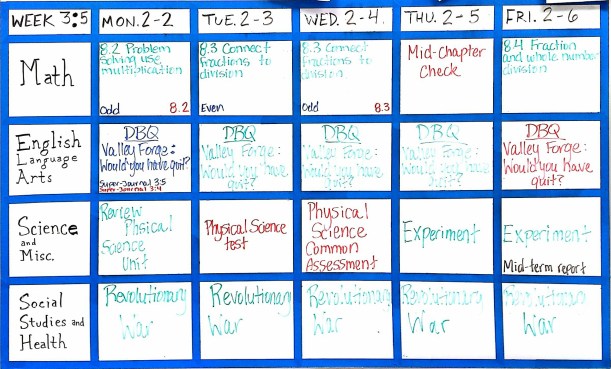 WEEK 3:5
MON. 2-2
TUE. 2-3
WED. 2-4.
THU. 2-5
FRI. 2-6
Math
8.2 Problem
Solving use
multiplication
Odd 8.2
8.3 Connect
fractions to
division
Even
8.3 Connect
fractions to
division
Odd 8.3
Mid-Chapter
Check
8.4 Fraction
and whole number
division
English
Language
Arts
DBQ
Valley Forge:
Would you have quit?
Super-Journal 3:5
Super-Journal 3:4
DBQ
Valley Forge:
Would you have
quit?
DBQ
Valley Forge:
Would you have
quit?
DBQ
Valley Forge:
Would you have
quit?
DBQ
Valley Forge:
Would you have
quit?
Science
and
Misc.
Review
Phsical
Science
Unit
Physical Science
test
Physical
Science
Common
Assessment
Experiment
Experiment
Mid-term report
Social
Studies and
Health
Revolutionary
War
Revolutionary
War
Revolutionary
War
Revolutionary
War
Revolutionary
War